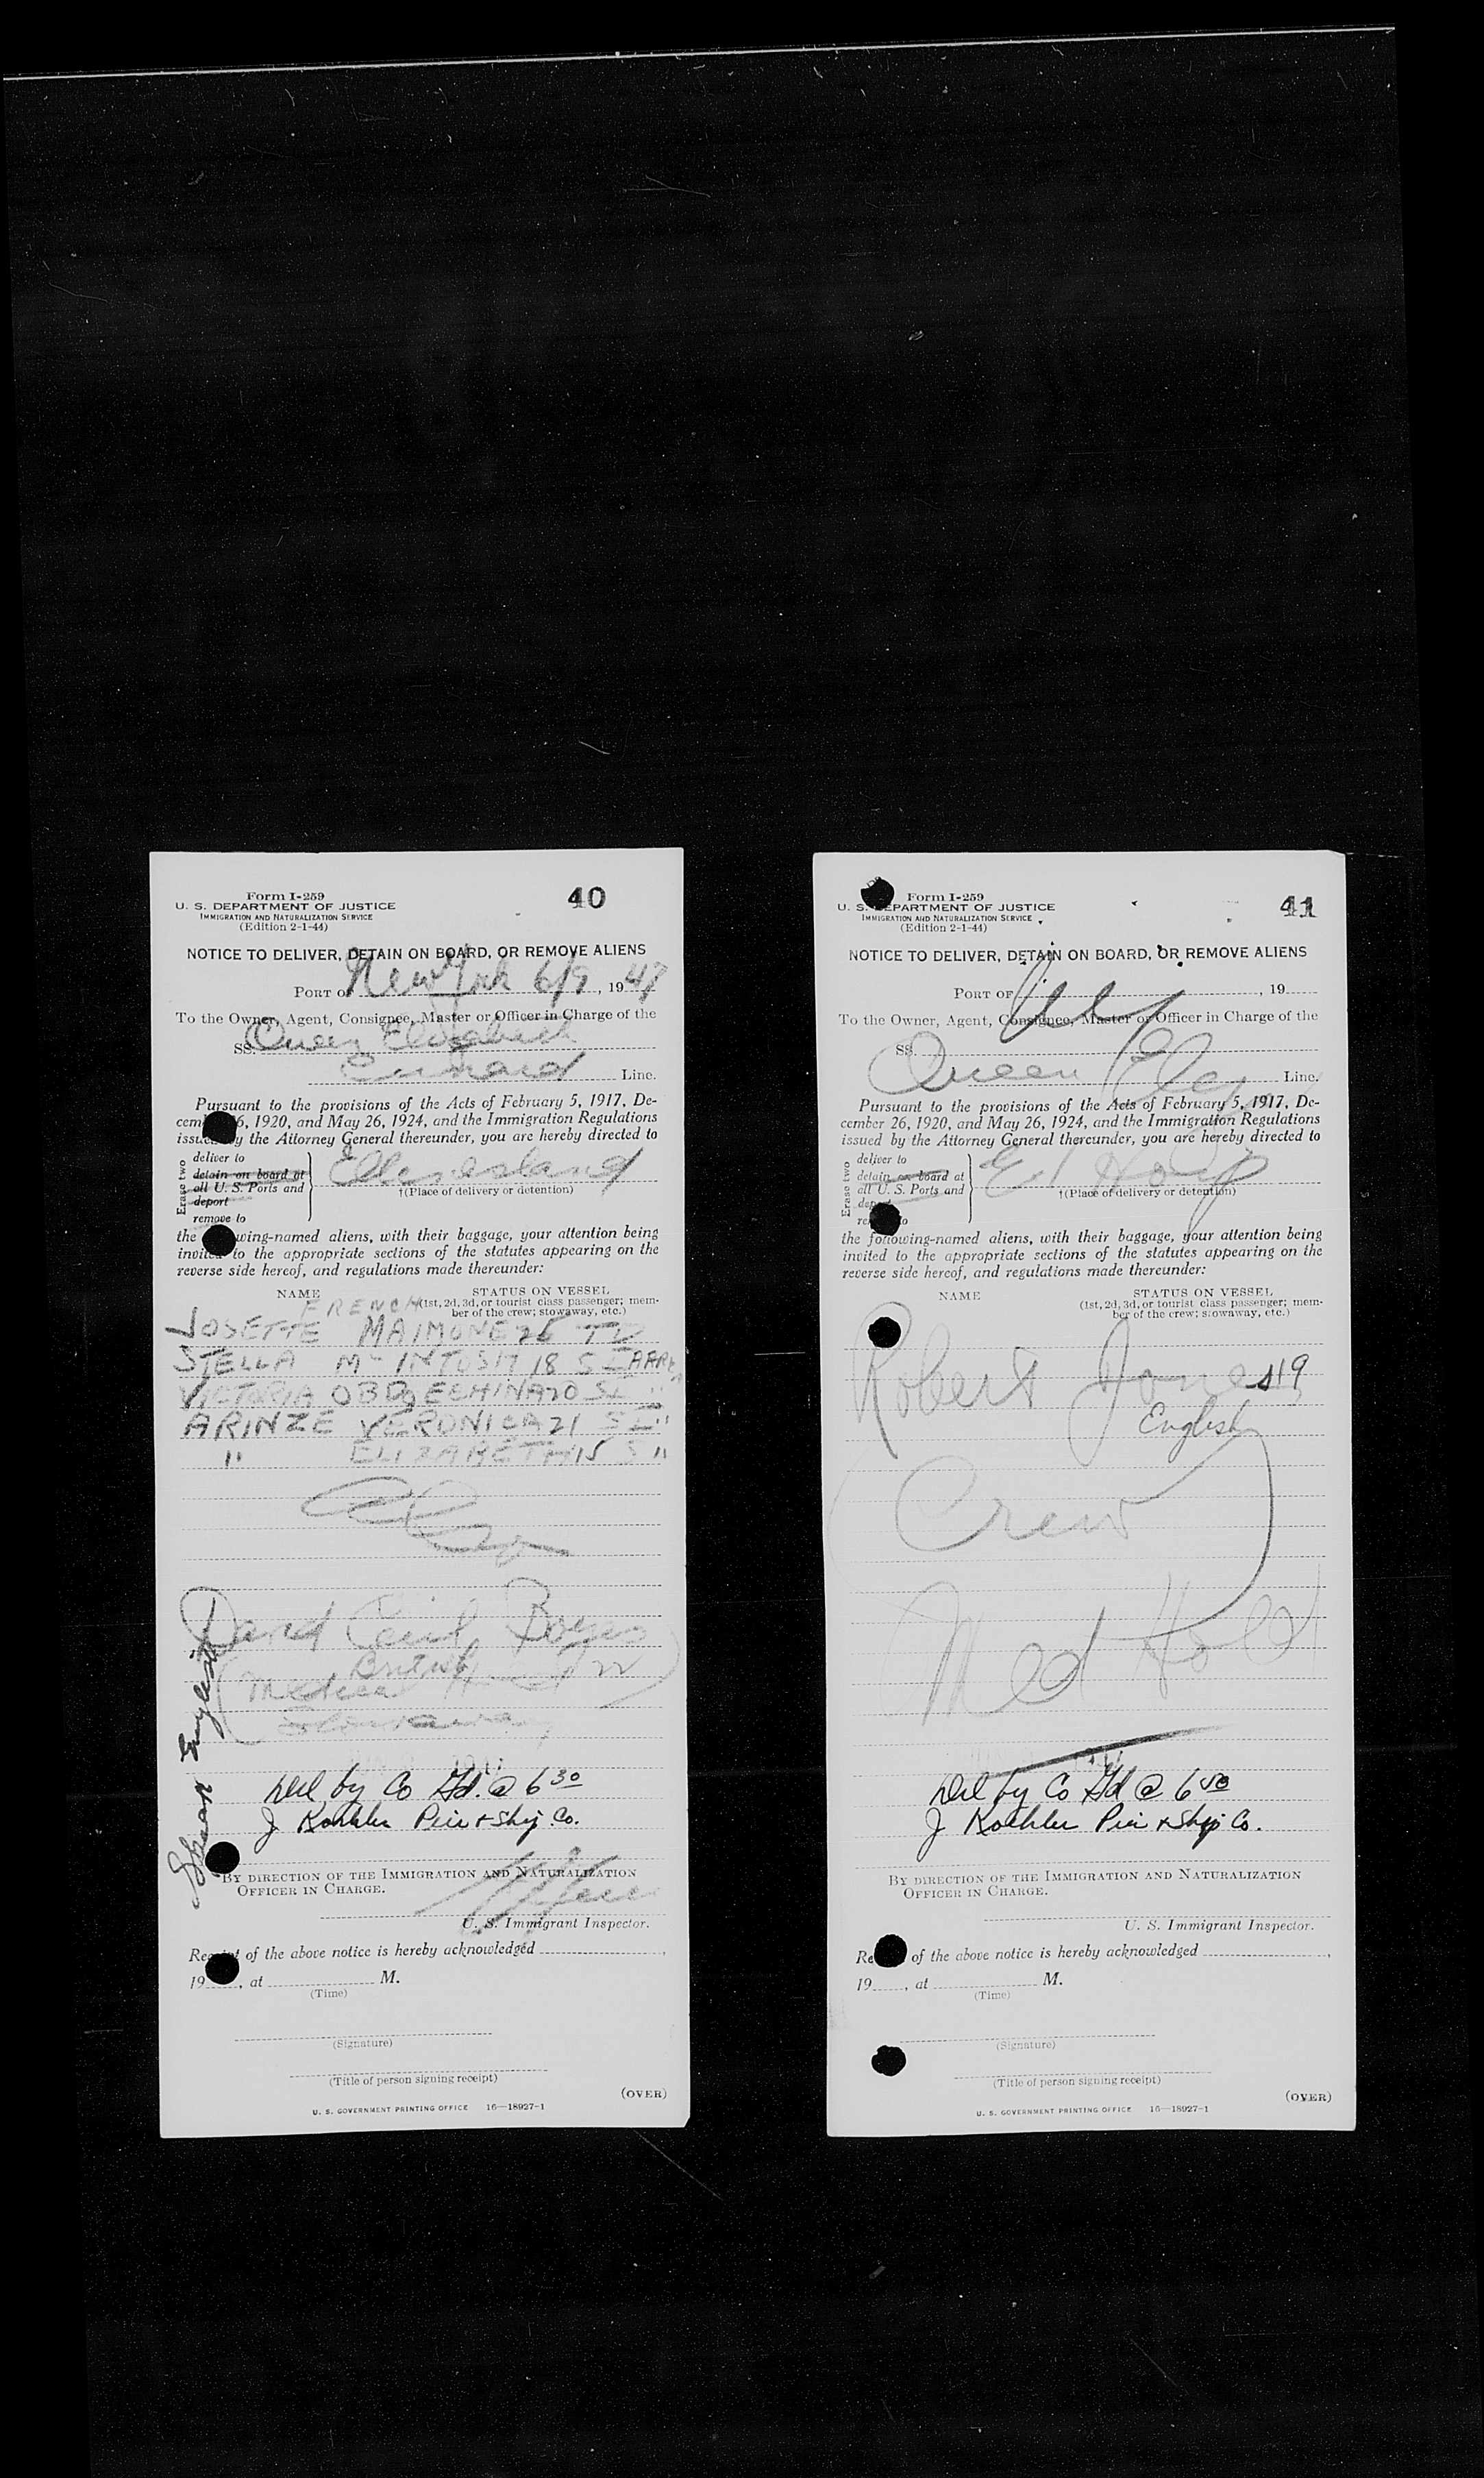 Form I-259
40
U. S. DEPARTMENT OF JUSTICE
IMMIGRATION AND NATURALIZATION SERVICE
(Edition 2-1-44)
NOTICE TO DELIVER, DETAIN ON BOARD, OR REMOVE ALIENS
PORT OF New York 6/9, 1948
To the Owner, Agent, Consignee, Master or Officer in Charge of the
SS. Queen Elizabeth
Cunard Line.
Pursuant to the provisions of the Acts of February 5, 1917, De-
6, 1920, and May 26, 1924, and the Immigration Regulations
y the Attorney General thereunder, you are hereby directed to
Erase two
deliver to
detain on board at
all U. S. Ports and
deport
remove to
Ellis Island
†(Place of delivery or detention)
the wing-named aliens, with their baggage, your attention being
invited to the appropriate sections of the statutes appearing on the
reverse side hereof, and regulations made thereunder:
NAME
STATUS ON VESSEL
(1st, 2d, 3d, or tourist class passenger; mem-
ber of the crew; stowaway, etc.)
FRENCH
JOSETTE MAIMONE 25
STELLA Mc INTOSH 18
VICTORIA
ARINZE VERONICA 21
" ELIZABETH 15 S "
David Cecil
British
Medical
Stowaway
English
Del by Co Gd. @ 6 30
J Koehler Pier + Ship Co.
BY DIRECTION OF THE IMMIGRATION AND NATURALIZATION
OFFICER IN CHARGE.
U. S. Immigrant Inspector.
Receipt of the above notice is hereby acknowledged
19 , at M.
(Time)
(Signature)
(Title of person signing receipt)
(OVER)
U. S. GOVERNMENT PRINTING OFFICE 16—18927-1
Form I-259
41
U. S. DEPARTMENT OF JUSTICE
IMMIGRATION AND NATURALIZATION SERVICE
(Edition 2-1-44)
NOTICE TO DELIVER, DETAIN ON BOARD, OR REMOVE ALIENS
PORT OF , 19
To the Owner, Agent, Consignee, Master or Officer in Charge of the
SS. Queen Eliz
Line.
Pursuant to the provisions of the Acts of February 5, 1917, De-
cember 26, 1920, and May 26, 1924, and the Immigration Regulations
issued by the Attorney General thereunder, you are hereby directed to
Erase two
deliver to
detain on board at
all U. S. Ports and
E I Hosp
†(Place of delivery or detention)
the following-named aliens, with their baggage, your attention being
invited to the appropriate sections of the statutes appearing on the
reverse side hereof, and regulations made thereunder:
NAME
STATUS ON VESSEL
(1st, 2d, 3d, or tourist class passenger; mem-
ber of the crew; stowaway, etc.)
Robert Jones 19
English
Crew
Med Hold
Del by Co Gd @ 6 50
J Koehler Pier + Ship Co.
BY DIRECTION OF THE IMMIGRATION AND NATURALIZATION
OFFICER IN CHARGE.
U. S. Immigrant Inspector.
Re of the above notice is hereby acknowledged
19 , at M.
(Time)
(Signature)
(Title of person signing receipt)
(OVER)
U. S. GOVERNMENT PRINTING OFFICE 16—18927-1